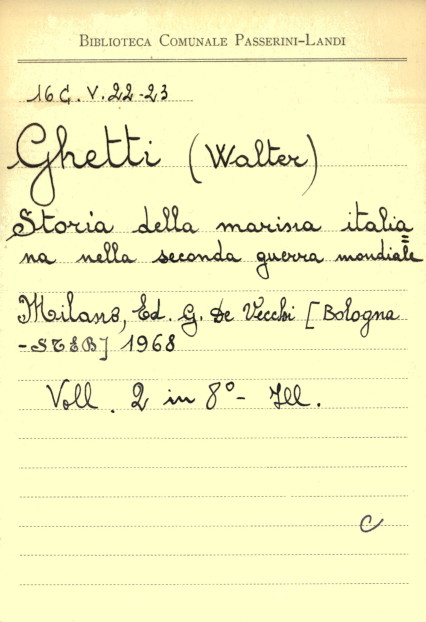 BIBLIOTECA COMUNALE PASSERINI-LANDI
16 C. V. 22-23
Ghetti (Walter)
Storia della marina italia=
na nella seconda guerra mondiale
Milano, Ed. G. De Vecchi [Bologna
-STEB] 1968
Voll. 2 in 8º - Ill.
C